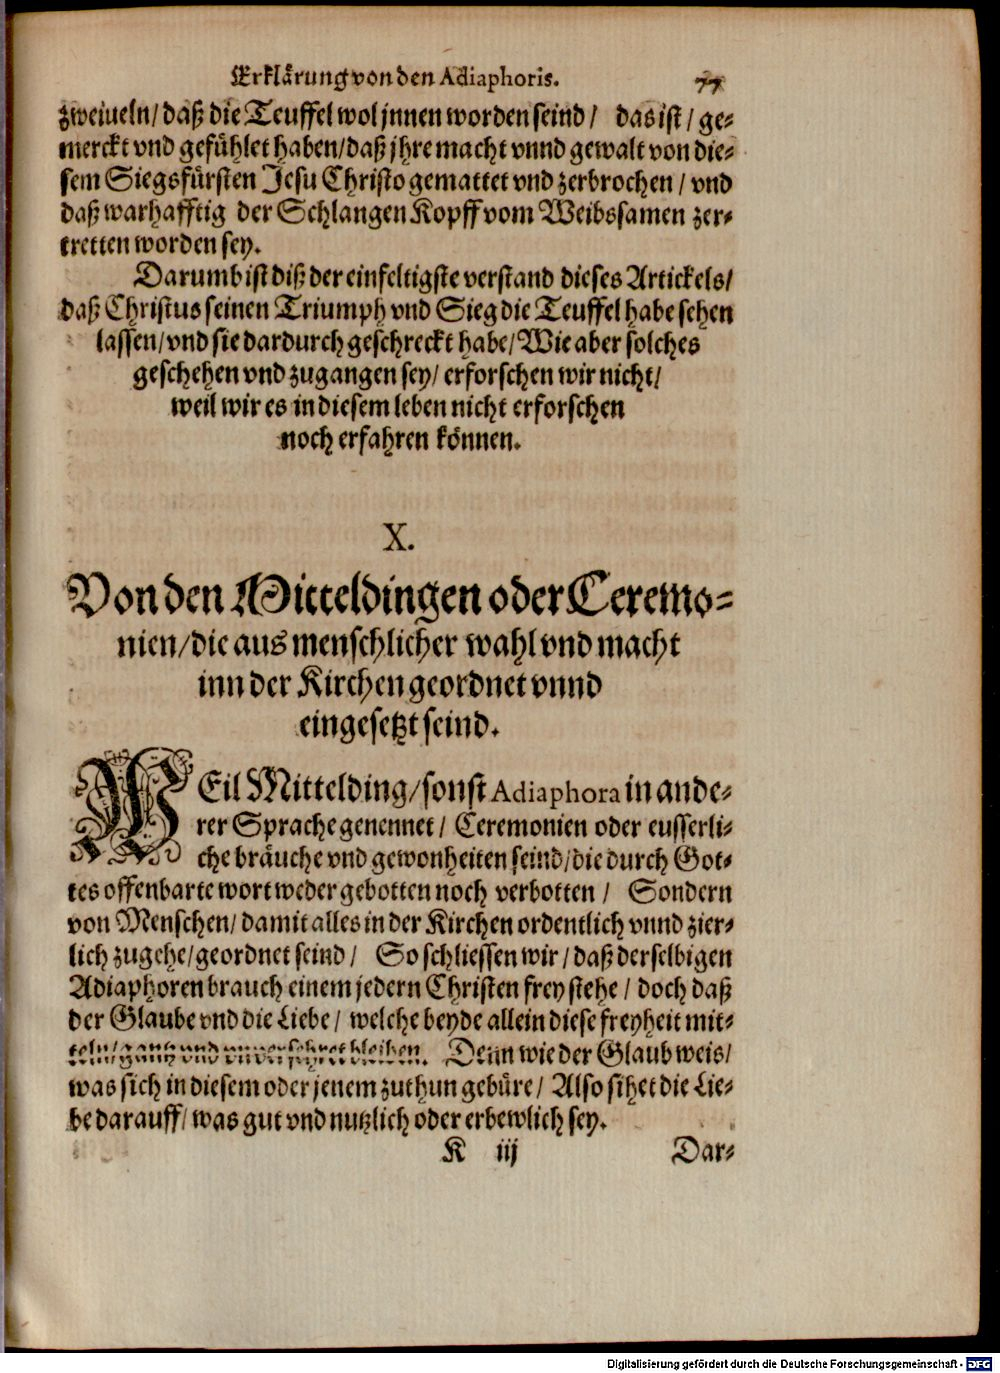 Erklärung von den Adiaphoris. 77
zweiueln/ daß die Teuffel wol jnnen worden seind/ das ist/ ge-
merckt vnd gefühlet haben/ daß jhre macht vnnd gewalt von die-
sem Siegsfürsten Jesu Christo gemattet vnd zerbrochen/ vnd
daß warhafftig der Schlangen Kopff vom Weibssamen zer-
tretten worden sey.
Darumb ist diß der einfeltigste verstand dieses Artickels/
daß Christus seinen Triumph vnd Sieg die Teuffel habe sehen
lassen/ vnd sie dardurch geschreckt habe/ Wie aber solches
geschehen vnd zugangen sey/ erforschen wir nicht/
weil wir es in diesem leben nicht erforschen
noch erfahren können.
X.
Von den Mitteldingen oder Ceremo-
nien/ die aus menschlicher wahl vnd macht
inn der Kirchen geordnet vnnd
eingesetzt seind.
WEil Mittelding/ sonst Adiaphora in ande-
rer Sprache genennet/ Ceremonien oder eusserli-
che bräuche vnd gewonheiten seind/ die durch Got-
tes offenbarte wort weder gebotten noch verbotten/ Sondern
von Menschen/ damit alles in der Kirchen ordentlich vnnd zier-
lich zugehe/ geordnet seind/ So schliessen wir/ daß derselbigen
Adiaphoren brauch einem jedern Christen frey stehe/ doch daß
der Glaube vnd die Liebe/ welche beyde allein diese freyheit mit-
teln/ gantz vnd vnversehret bleiben. Denn wie der Glaub weis/
was sich in diesem oder jenem zuthun gebüre/ Also sihet die Lie-
be darauff/ was gut vnd nutzlich oder erbewlich sey.
K iij Dar-
Digitalisierung gefördert durch die Deutsche Forschungsgemeinschaft - DFG